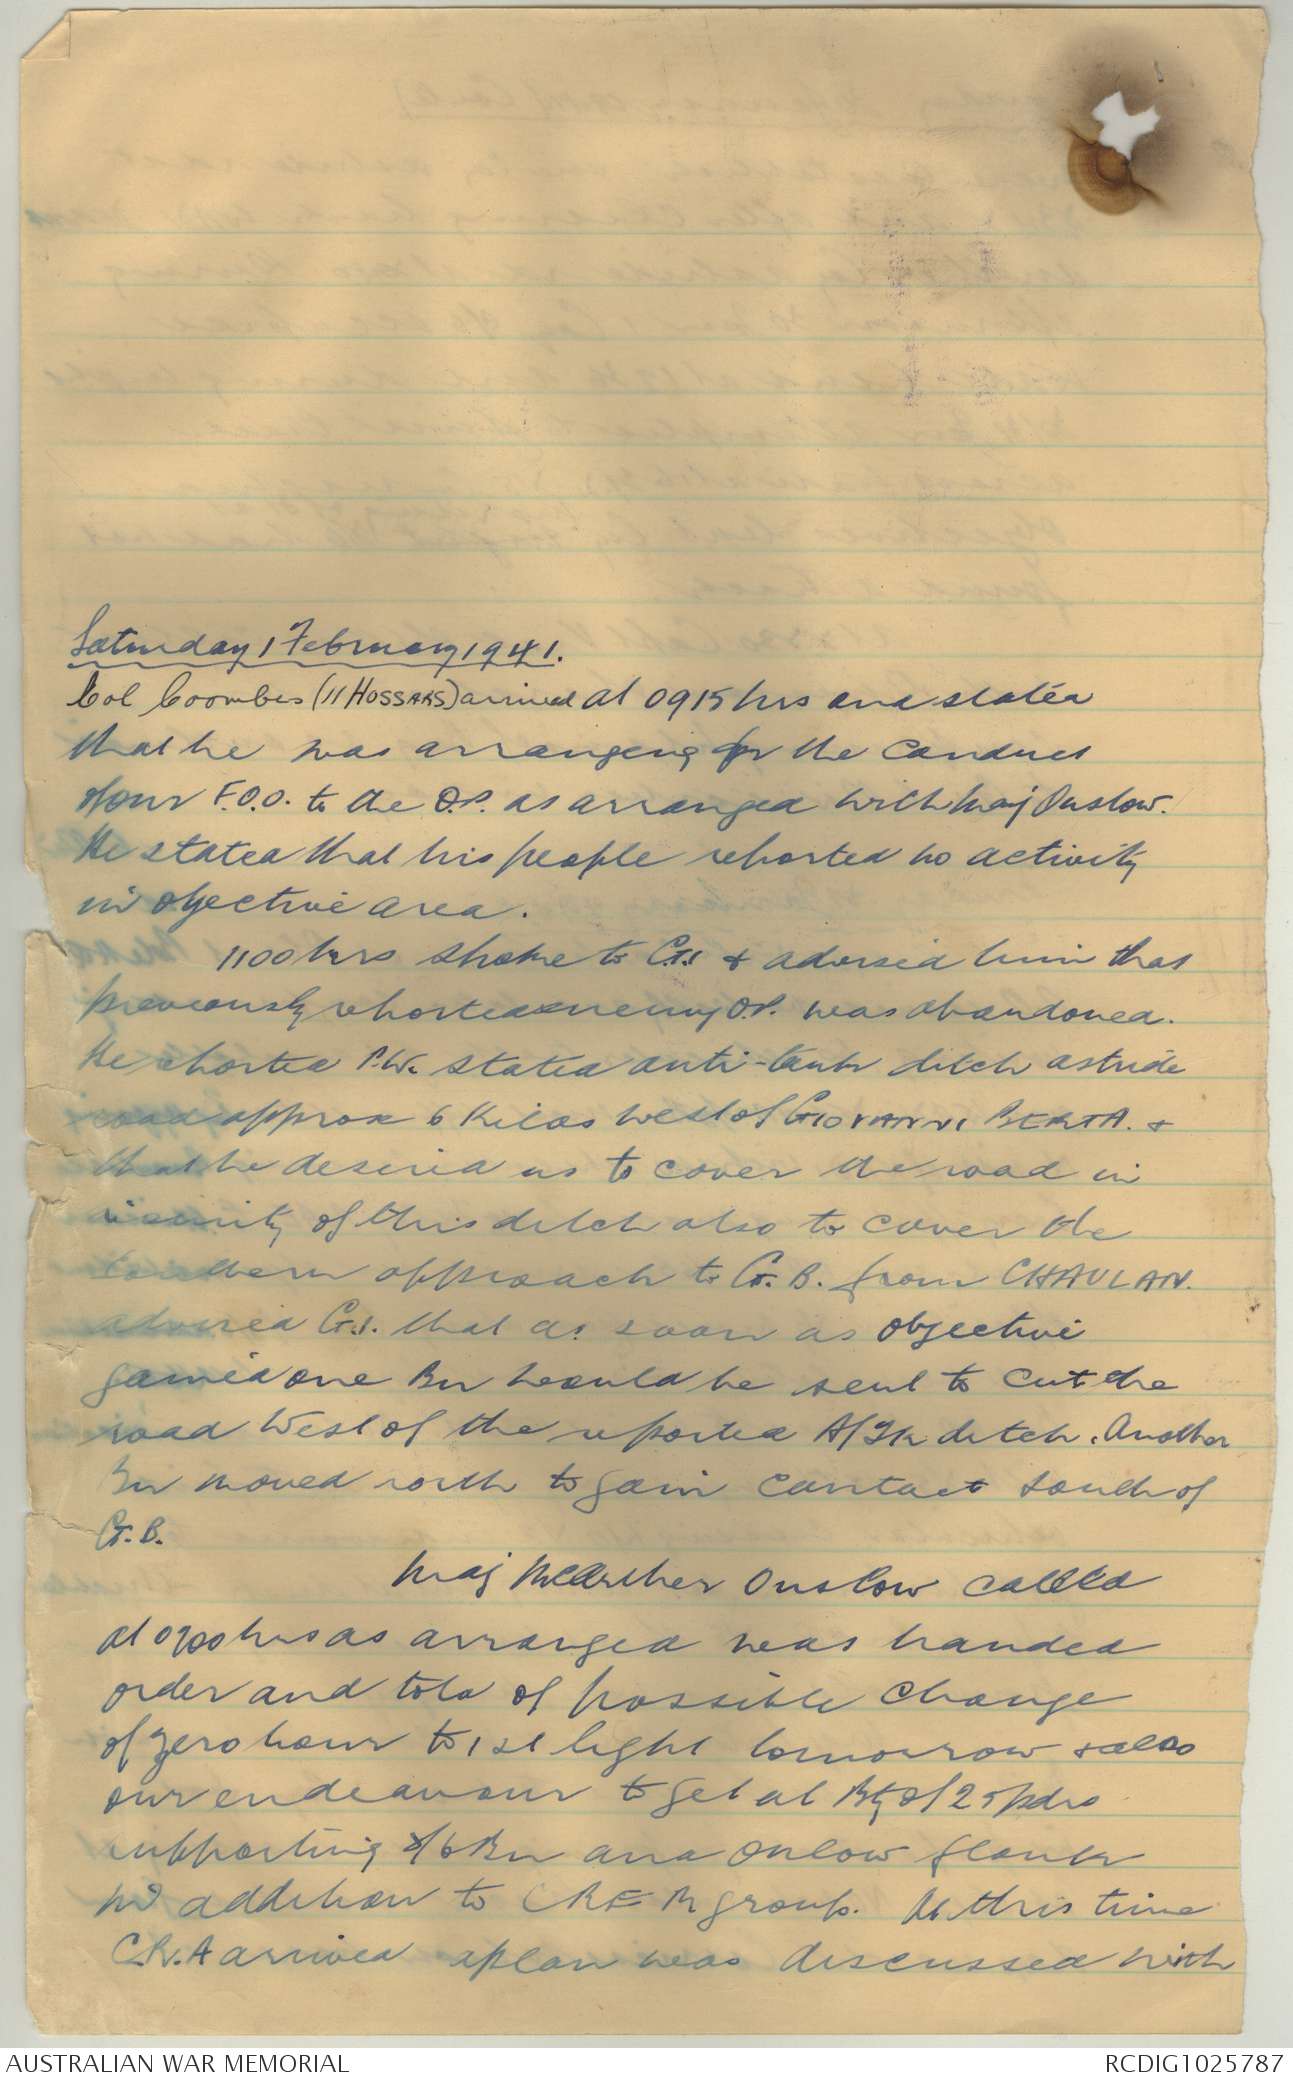 Saturday 1 February 1941.
Col Coombes (11 HOSSARS) arrived at 0915 hrs and stated
that he was arranging for the conduct
of our F.O.O. to the O.P. as arranged with Maj Onslow.
He stated that his people reported no activity
in objective area.
1100 hrs spoke to G.1 & advised him that
previously reported enemy O.P. was abandoned.
He reported P.W. stated anti-tank ditch astride
road approx 6 Kilos West of GIOVANNI BERTA. &
that he desired us to cover the road in
vicinity of this ditch also to cover the
Southern approach to G.B. from CHAULAN.
advised G.1. that as soon as objective
gained one Bn would be sent to cut the
road West of the reported A/Tk ditch. Another
Bn moved north to gain contact South of
G.B.
Maj McArther Onslow called
at 0900 hrs as arranged was handed
order and told of possible change
of zero hour to 1st light tomorrow & also
our endeavour to get at Bty of 25 pdrs
supporting 2/6 Bn and Onlow flank
in addition to group. At this time
C.R.A arrived a plan was discussed with
AUSTRALIAN WAR MEMORIAL
RCDIG1025787